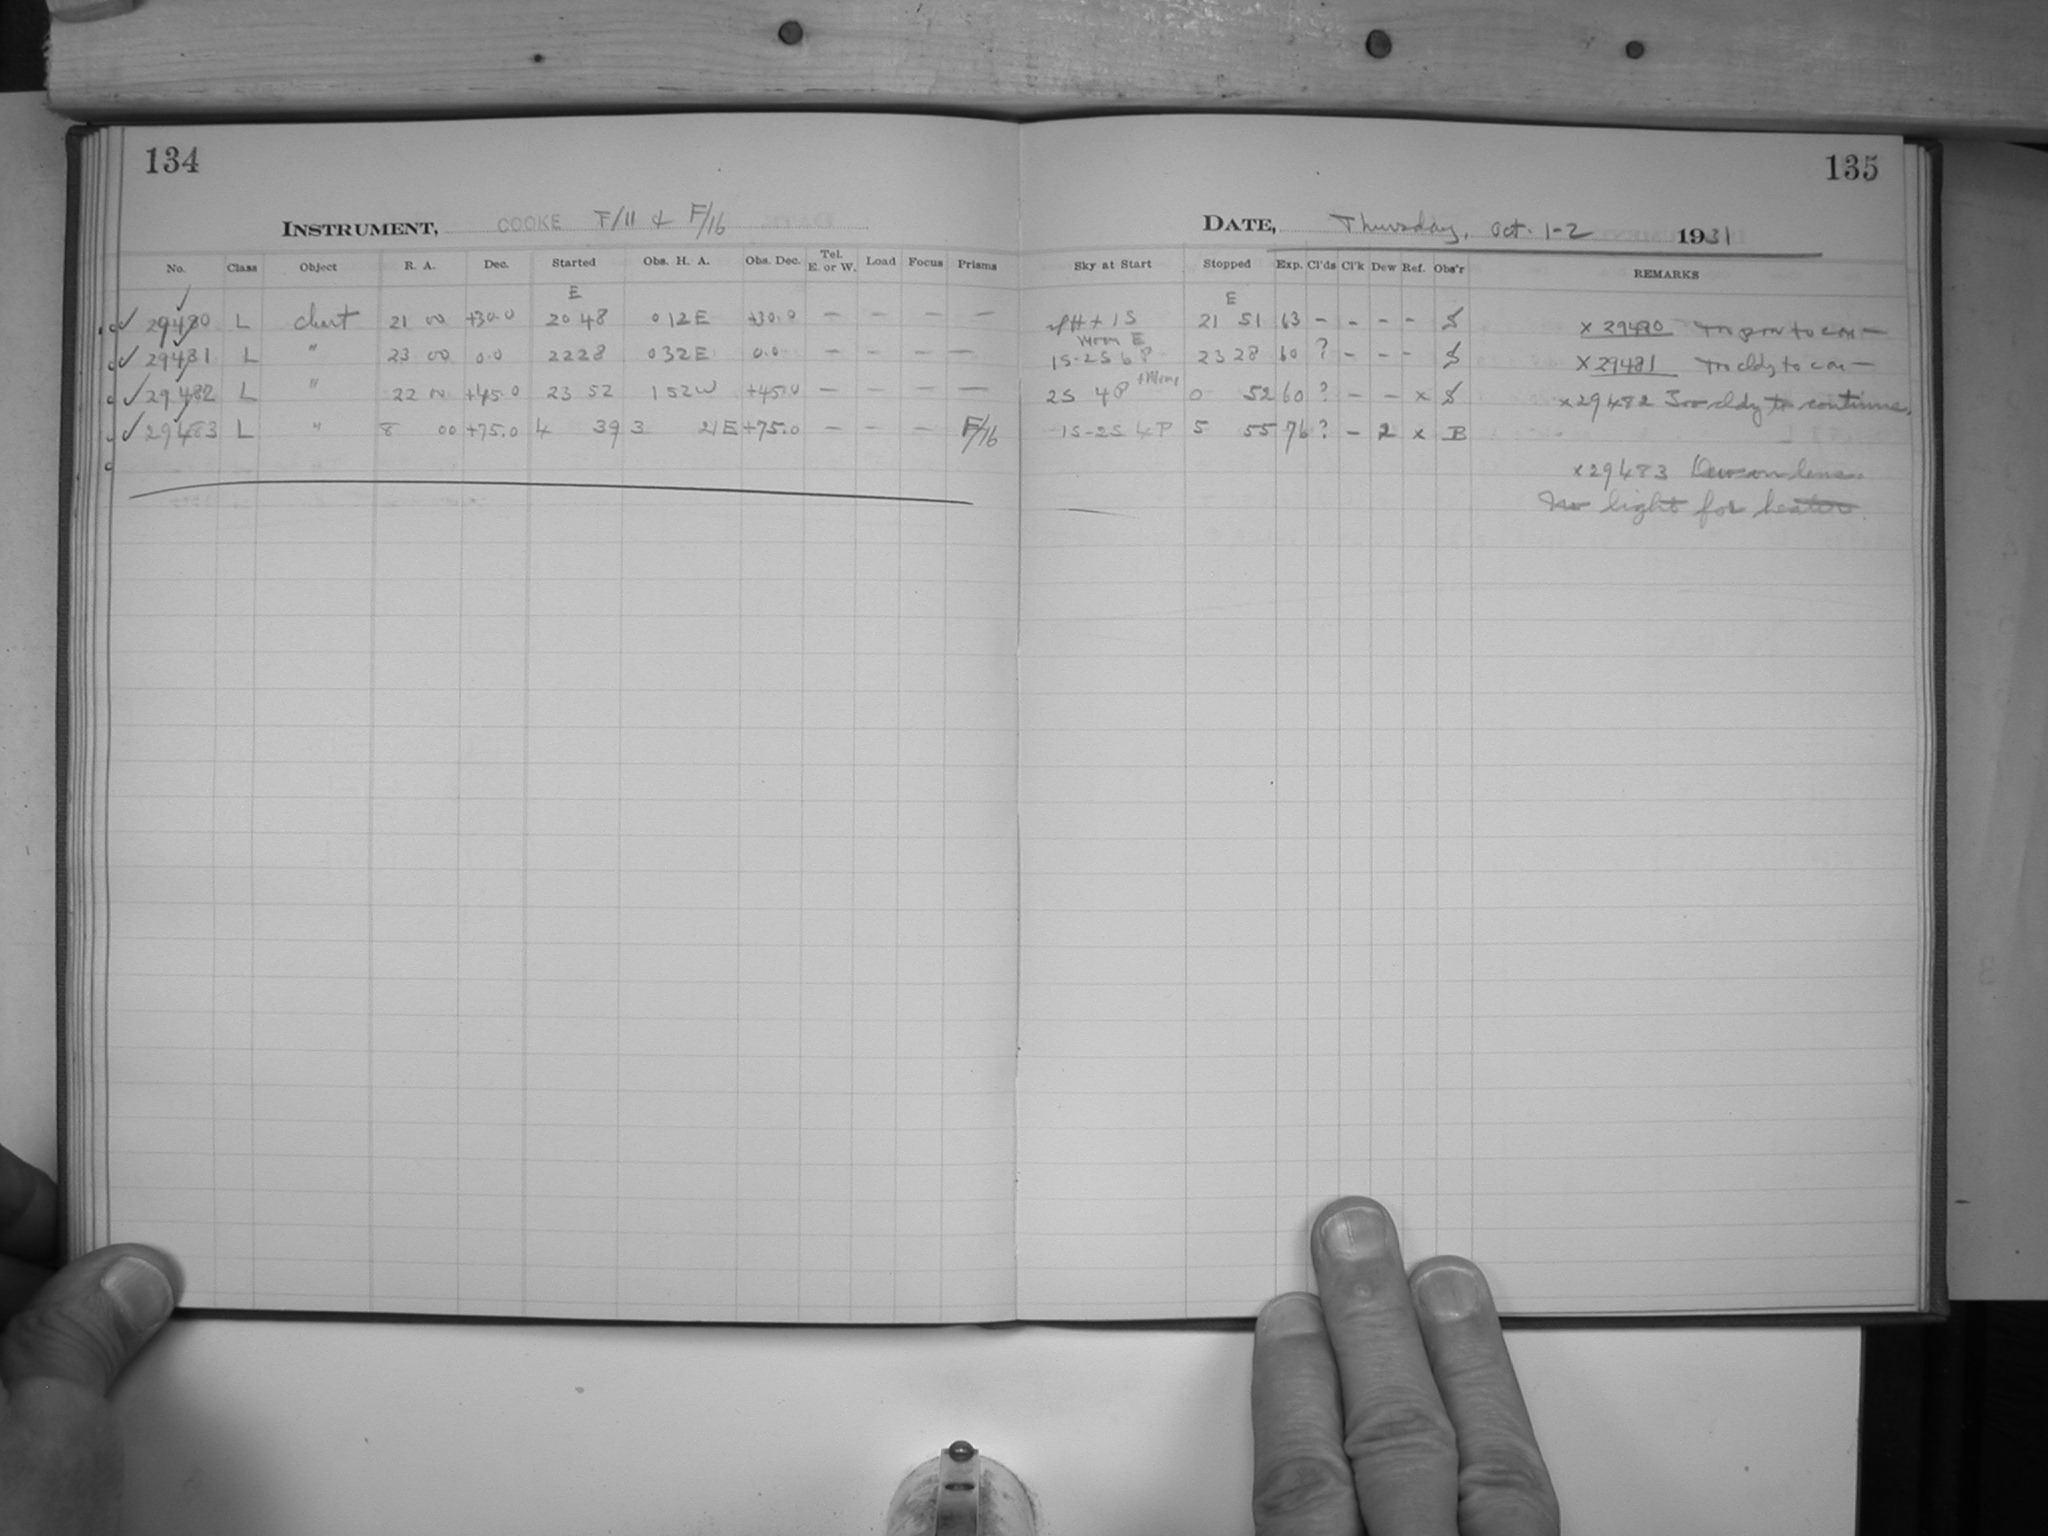 134
INSTRUMENT, COOKE F/11 & F/16
No. Class Object R. A. Dec. Started Obs. H. A. Obs. Dec. Tel. E. or W. Load Focus Prisms
E
✓ 29480 L chart 21 00 +30.0 20 48 0 12 E +30.0 — — — —
✓ 29481 L " 23 00 0.0 22 28 0 32 E 0.0 — — — —
✓ 29482 L " 22 00 +45.0 23 52 1 52 W +45.0 — — — —
✓ 29483 L " 8 00 +75.0 4 39 3 21 E +75.0 — — — F/16
135
DATE, Thursday, Oct. 1-2 1931
Sky at Start Stopped Exp. Cl'ds Cl'k Dew Ref. Obs'r REMARKS
E
+ 1S 21 51 63 - - - - S x 29480 to con—
Moon E
1S-2S 6P 23 28 60 ? - - - S x 29481 Too cldy to con—
2S 4P + Moon 0 52 60 ? - - x S x 29482 Too cldy to continue.
1S-2S 4P 5 55 76 ? - 2 x B
x 29483 Dew on lens.
No light for heater.